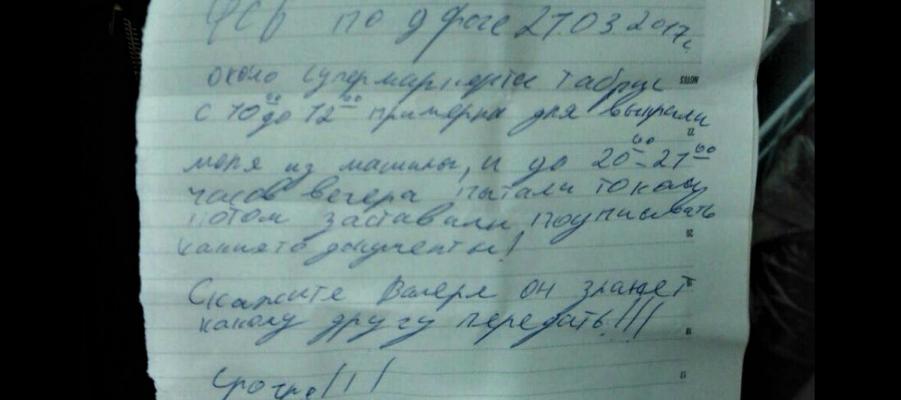 ФСБ по дроге 27.03.2017г
около супермаркета Табрис
с 10⁰⁰ до 12⁰⁰ примерна дня выкрали
меня из машины, и до 20⁰⁰-21⁰⁰
часов вечера пытали током
потом заставили подписовать
какието документы!
Скажите Валере он знает
какому другу передать!!!
Срочно!!!